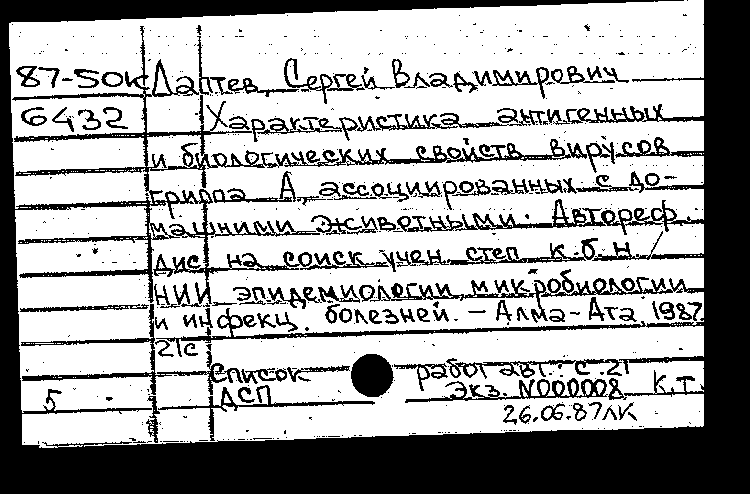 87-50К Лаптев, Сергей Владимирович
6432 Характеристика антигенных
и биологических свойств вирусов
гриппа А, ассоциированных с до-
машними животными. Автореф.
дис на соиск учен степ к.б.н /
НИИ эпидемиологии, микробиологии
и инфекц. болезней. - Алма-Ата, 1987
21с
Список работ авт.: с. 21
5 ДСП Экз. N000008 К.Т.
26.06.87ЛК